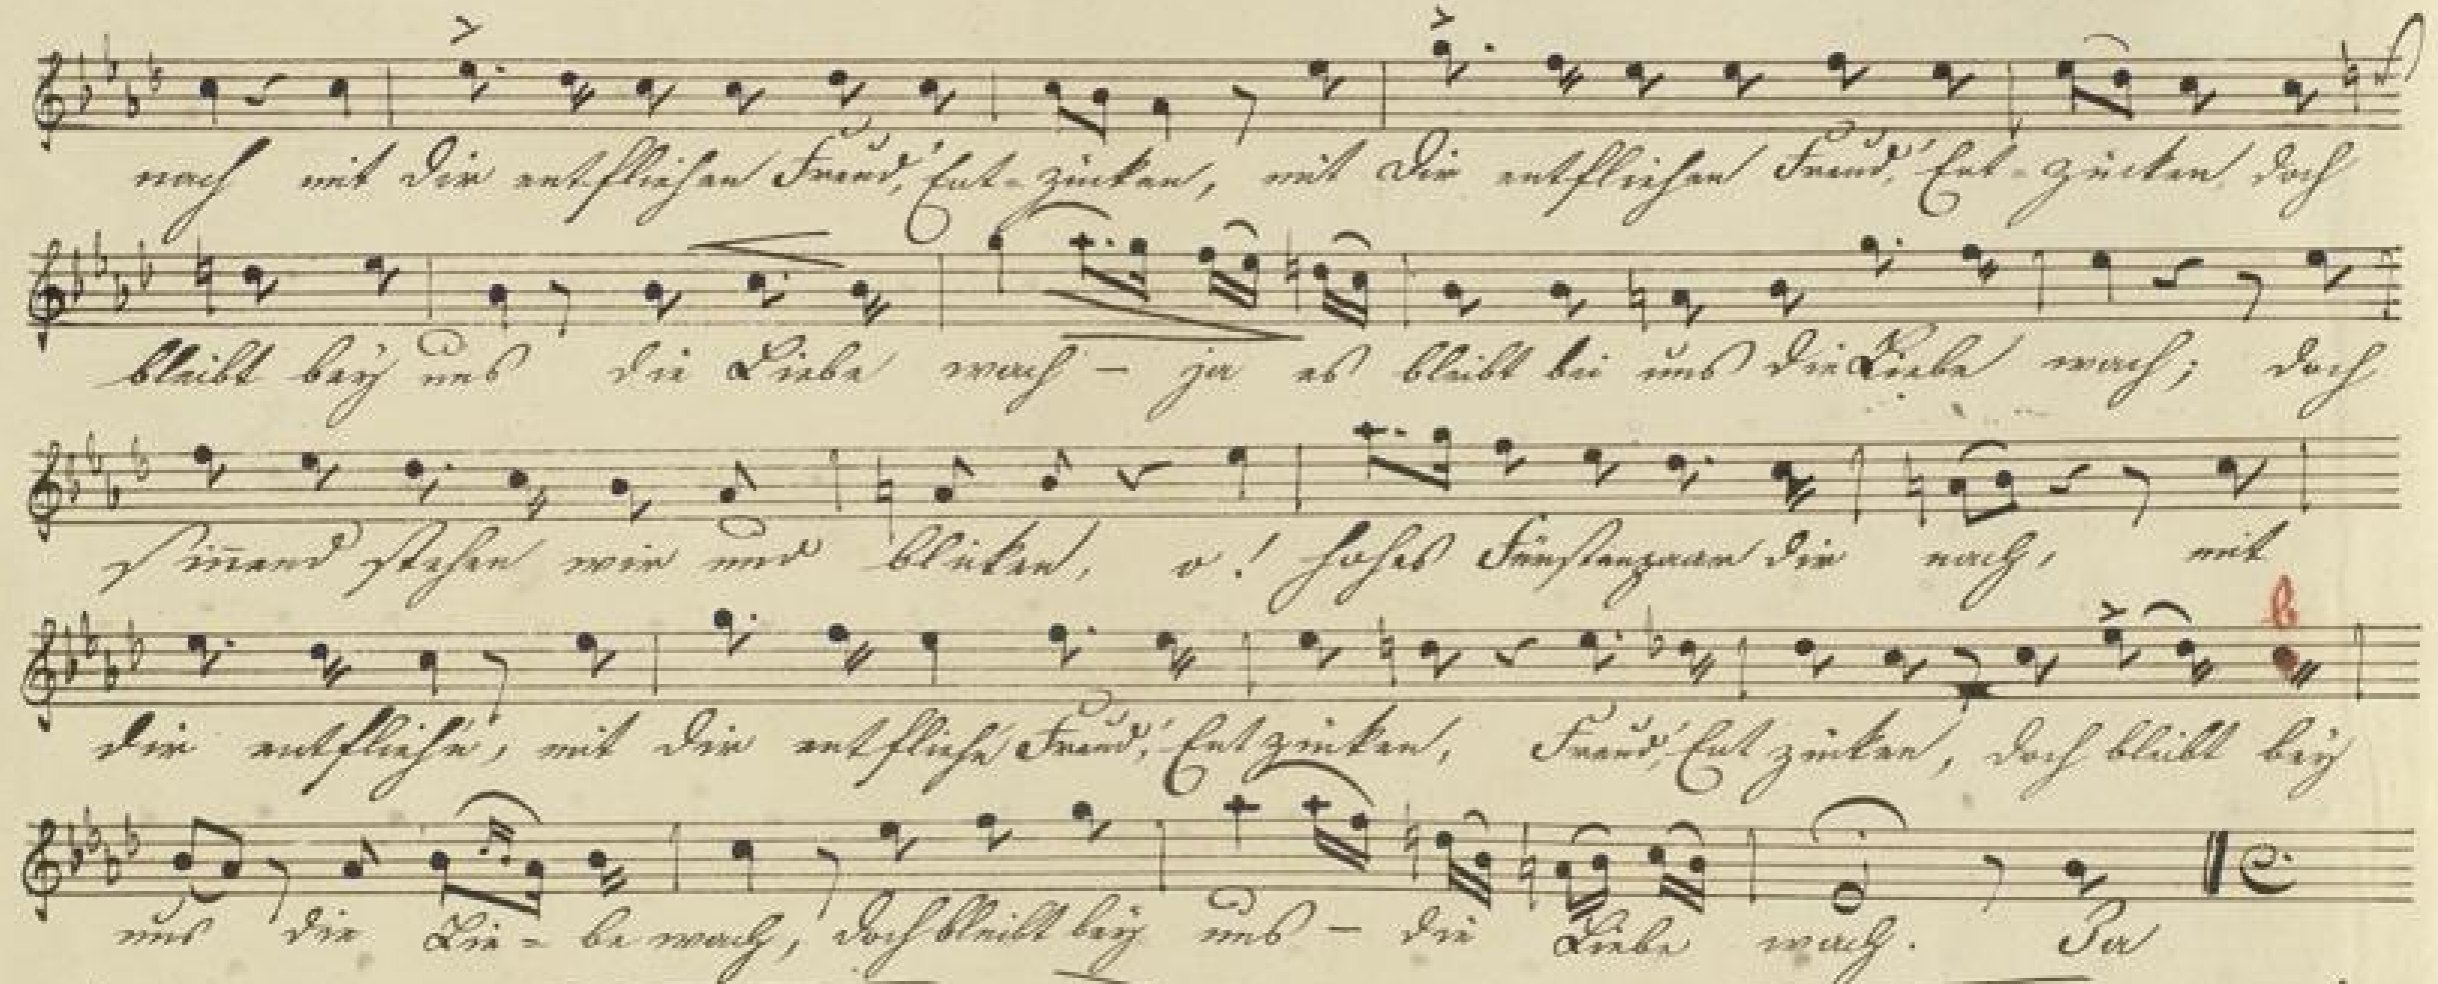 nach mit dir entfliehen Freud', Ent- zücken, mit dir entfliehen Freud', Ent- zücken doch
bleibt bey uns die Liebe wach – ja es bleibt bei uns die Liebe wach; doch
sin̄end stehen wir und bliken, o! hohes Fürstenpaar dir nach, mit
dir entflieh'n, mit dir entflieh'n Freud', Entzücken, Freud', Entzücken, doch bleibt bey
uns die Lie- be wach, doch bleibt bey uns – die Liebe wach. Ja